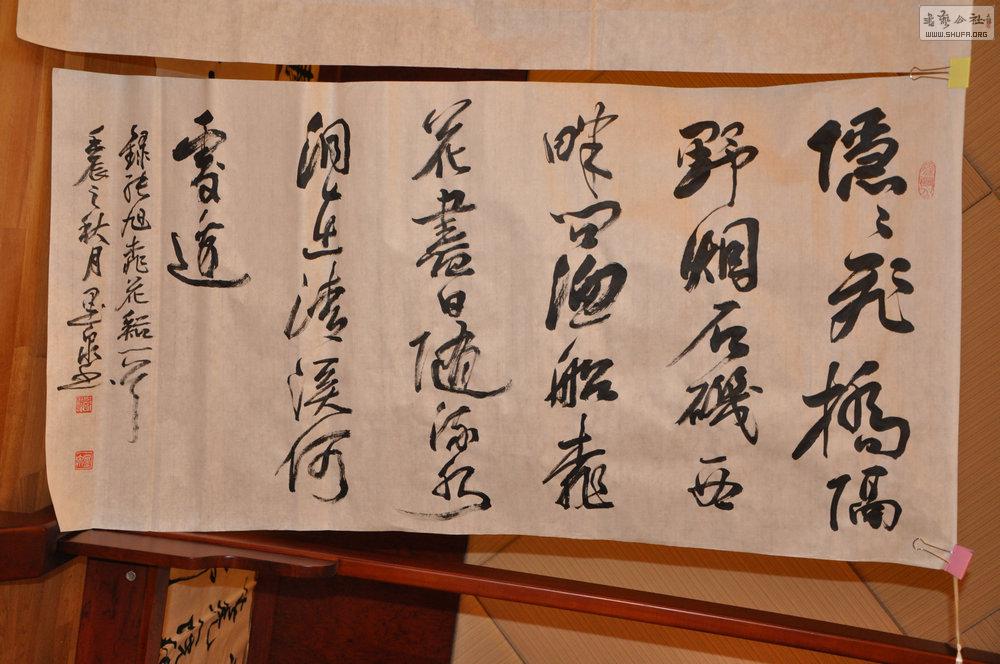 隱〻飛橋隔
野烟石磯西
畔问漁船桃
花盡日隨流水
洞在清溪何
處邊
錄张旭桃花谿一首
壬辰之秋月墨泉书
书艺公社
WWW.SHUFA.ORG